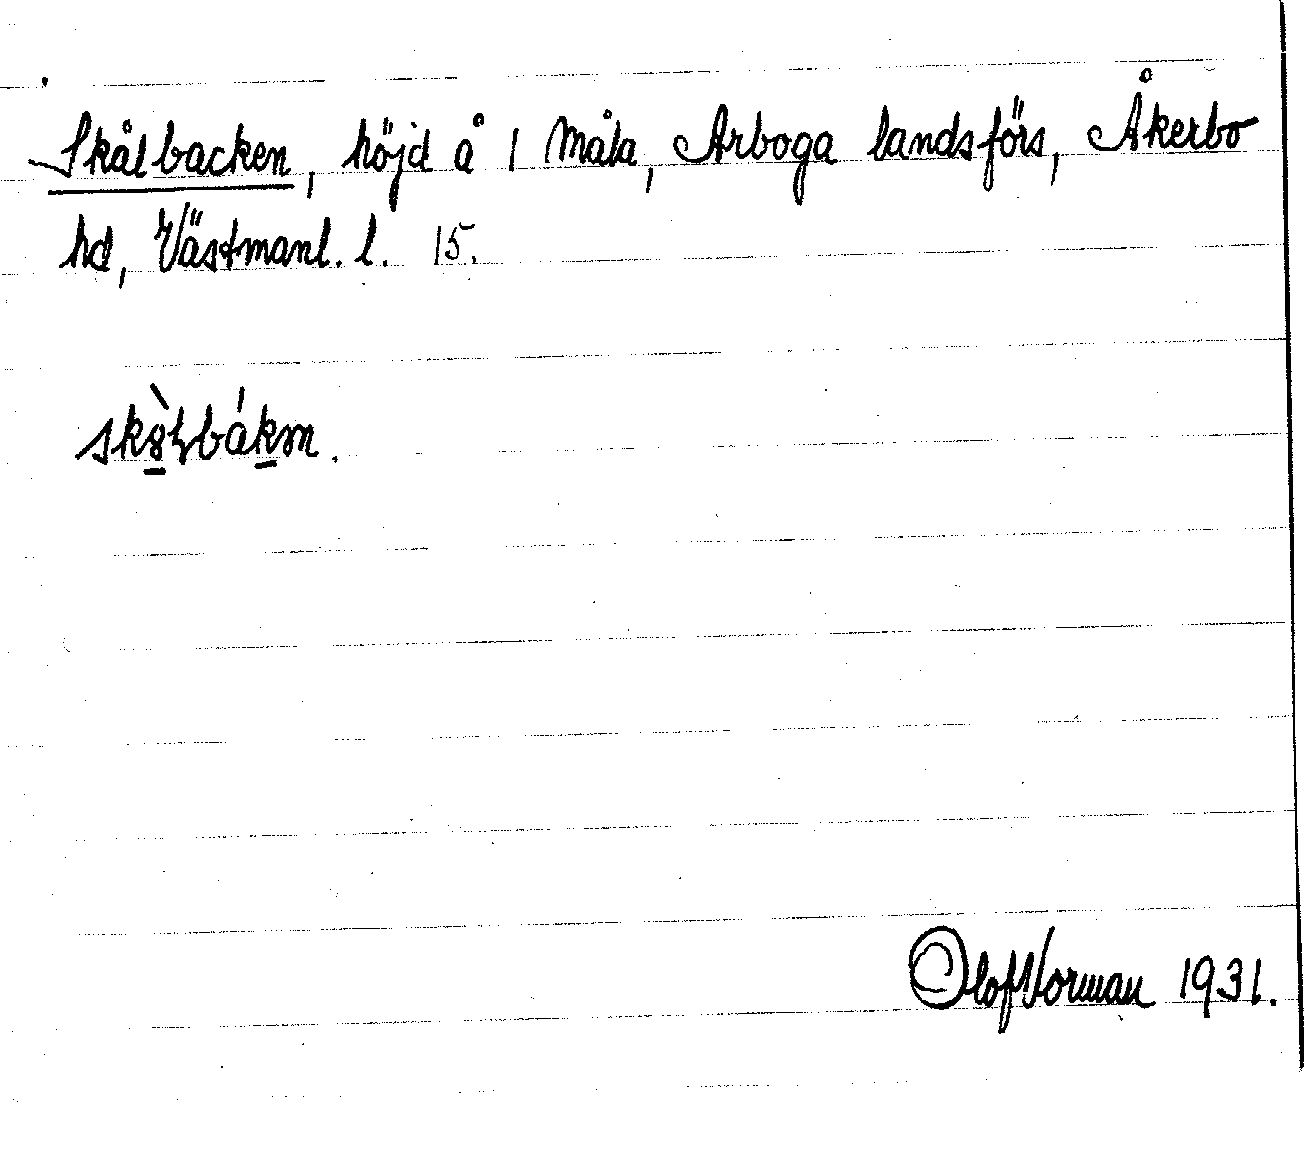 Skålbacken, höjd å 1 Måla, Arboga landsförs, Åkerbo
hd, Västmanl. l. 15.
Olof Norman 1931.